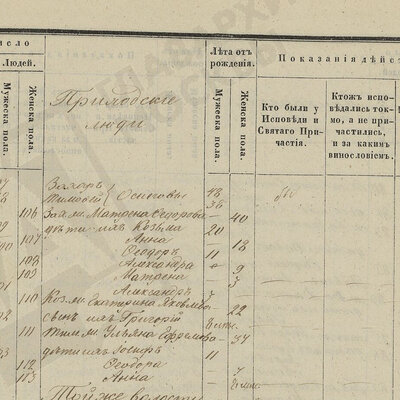 число
Людей.
Мужеска пола.
Женска пола.
Приходскіе
люди
Лѣта отъ
рожденія.
Мужеска пола.
Женска пола.
Показанія дѣйст
Кто были у
Исповѣди и
Святаго При-
частія.
Ктожъ испо-
вѣдались ток-
мо, а не при-
частились,
и за какимъ
винословіемъ.
Захаръ
Тимоѳей Осиповы 48
38
106 Зах. ж. Матрена Ѳедорова 40
дѣти ихъ Козьма 20
107 Анна 18
Ѳеодоръ 11
108 Александра 9
109 Матрена 3
Александръ
110 Коз. ж. Екатерина Яковлева 22
сынъ ихъ Григорій
111 Тим. ж. Ульяна Ефремова 37
дѣти ихъ Іосифъ 11
112 Ѳеодора 7
113 Анна
Той же волости